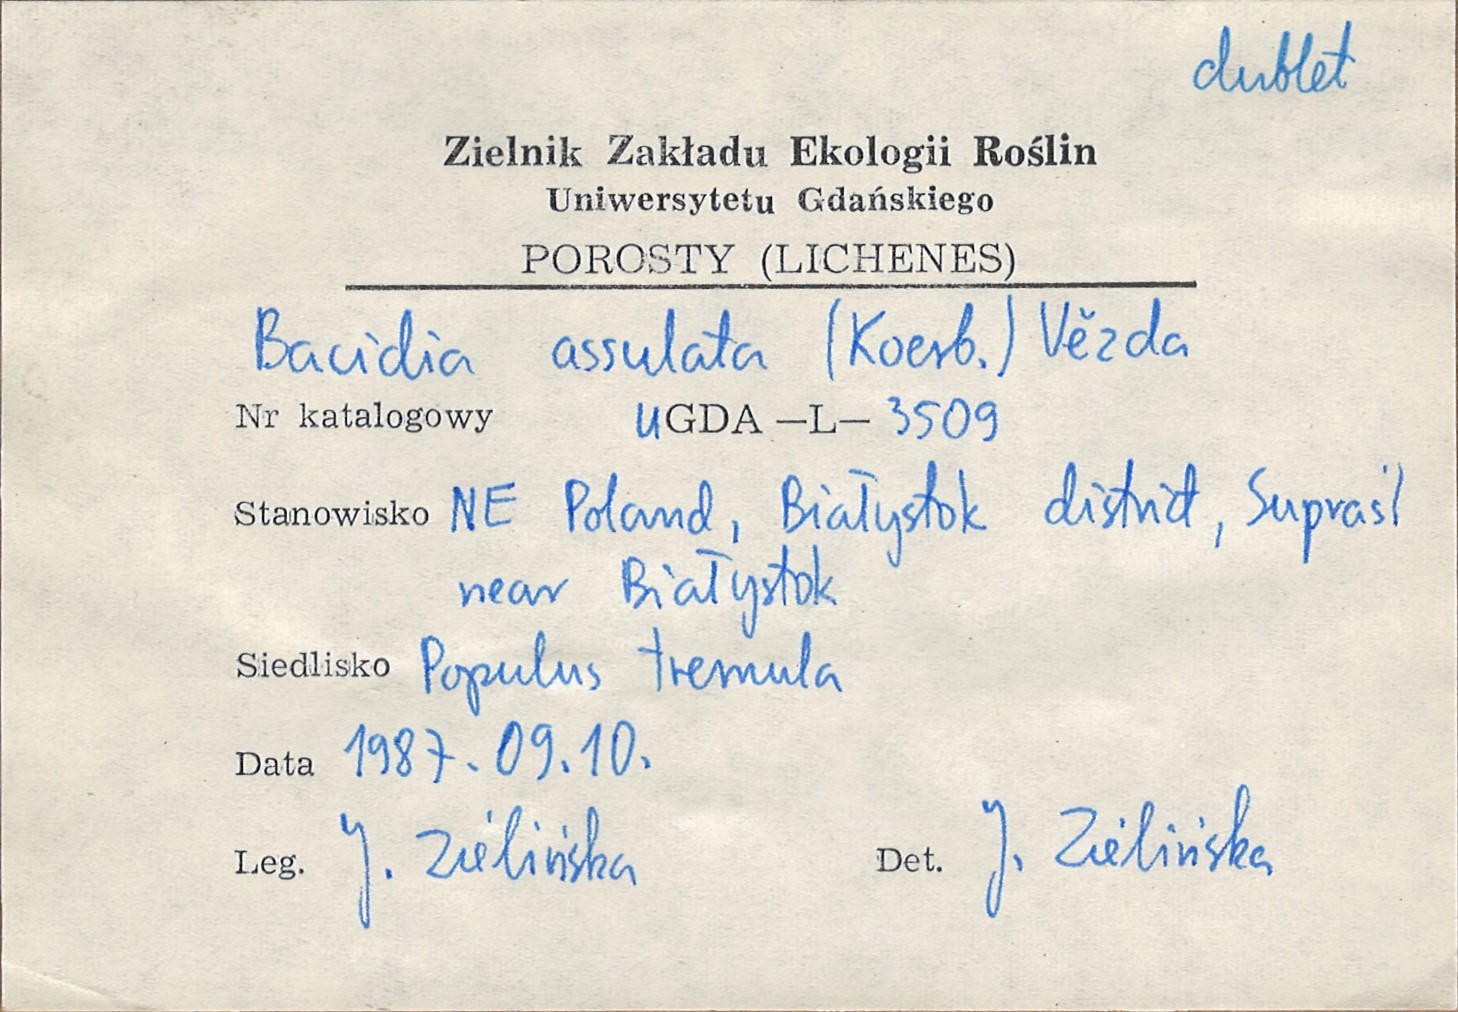 dublet
Zielnik Zakładu Ekologii Roślin
Uniwersytetu Gdańskiego
POROSTY (LICHENES)
Bacidia assulata (Koerb.) Vězda
Nr katalogowy UGDA —L— 3509
Stanowisko NE Poland, Białystok district, Supraśl
near Białystok
Siedlisko Populus tremula
Data 1987.09.10.
Leg. J. Zielińska Det. J. Zielińska